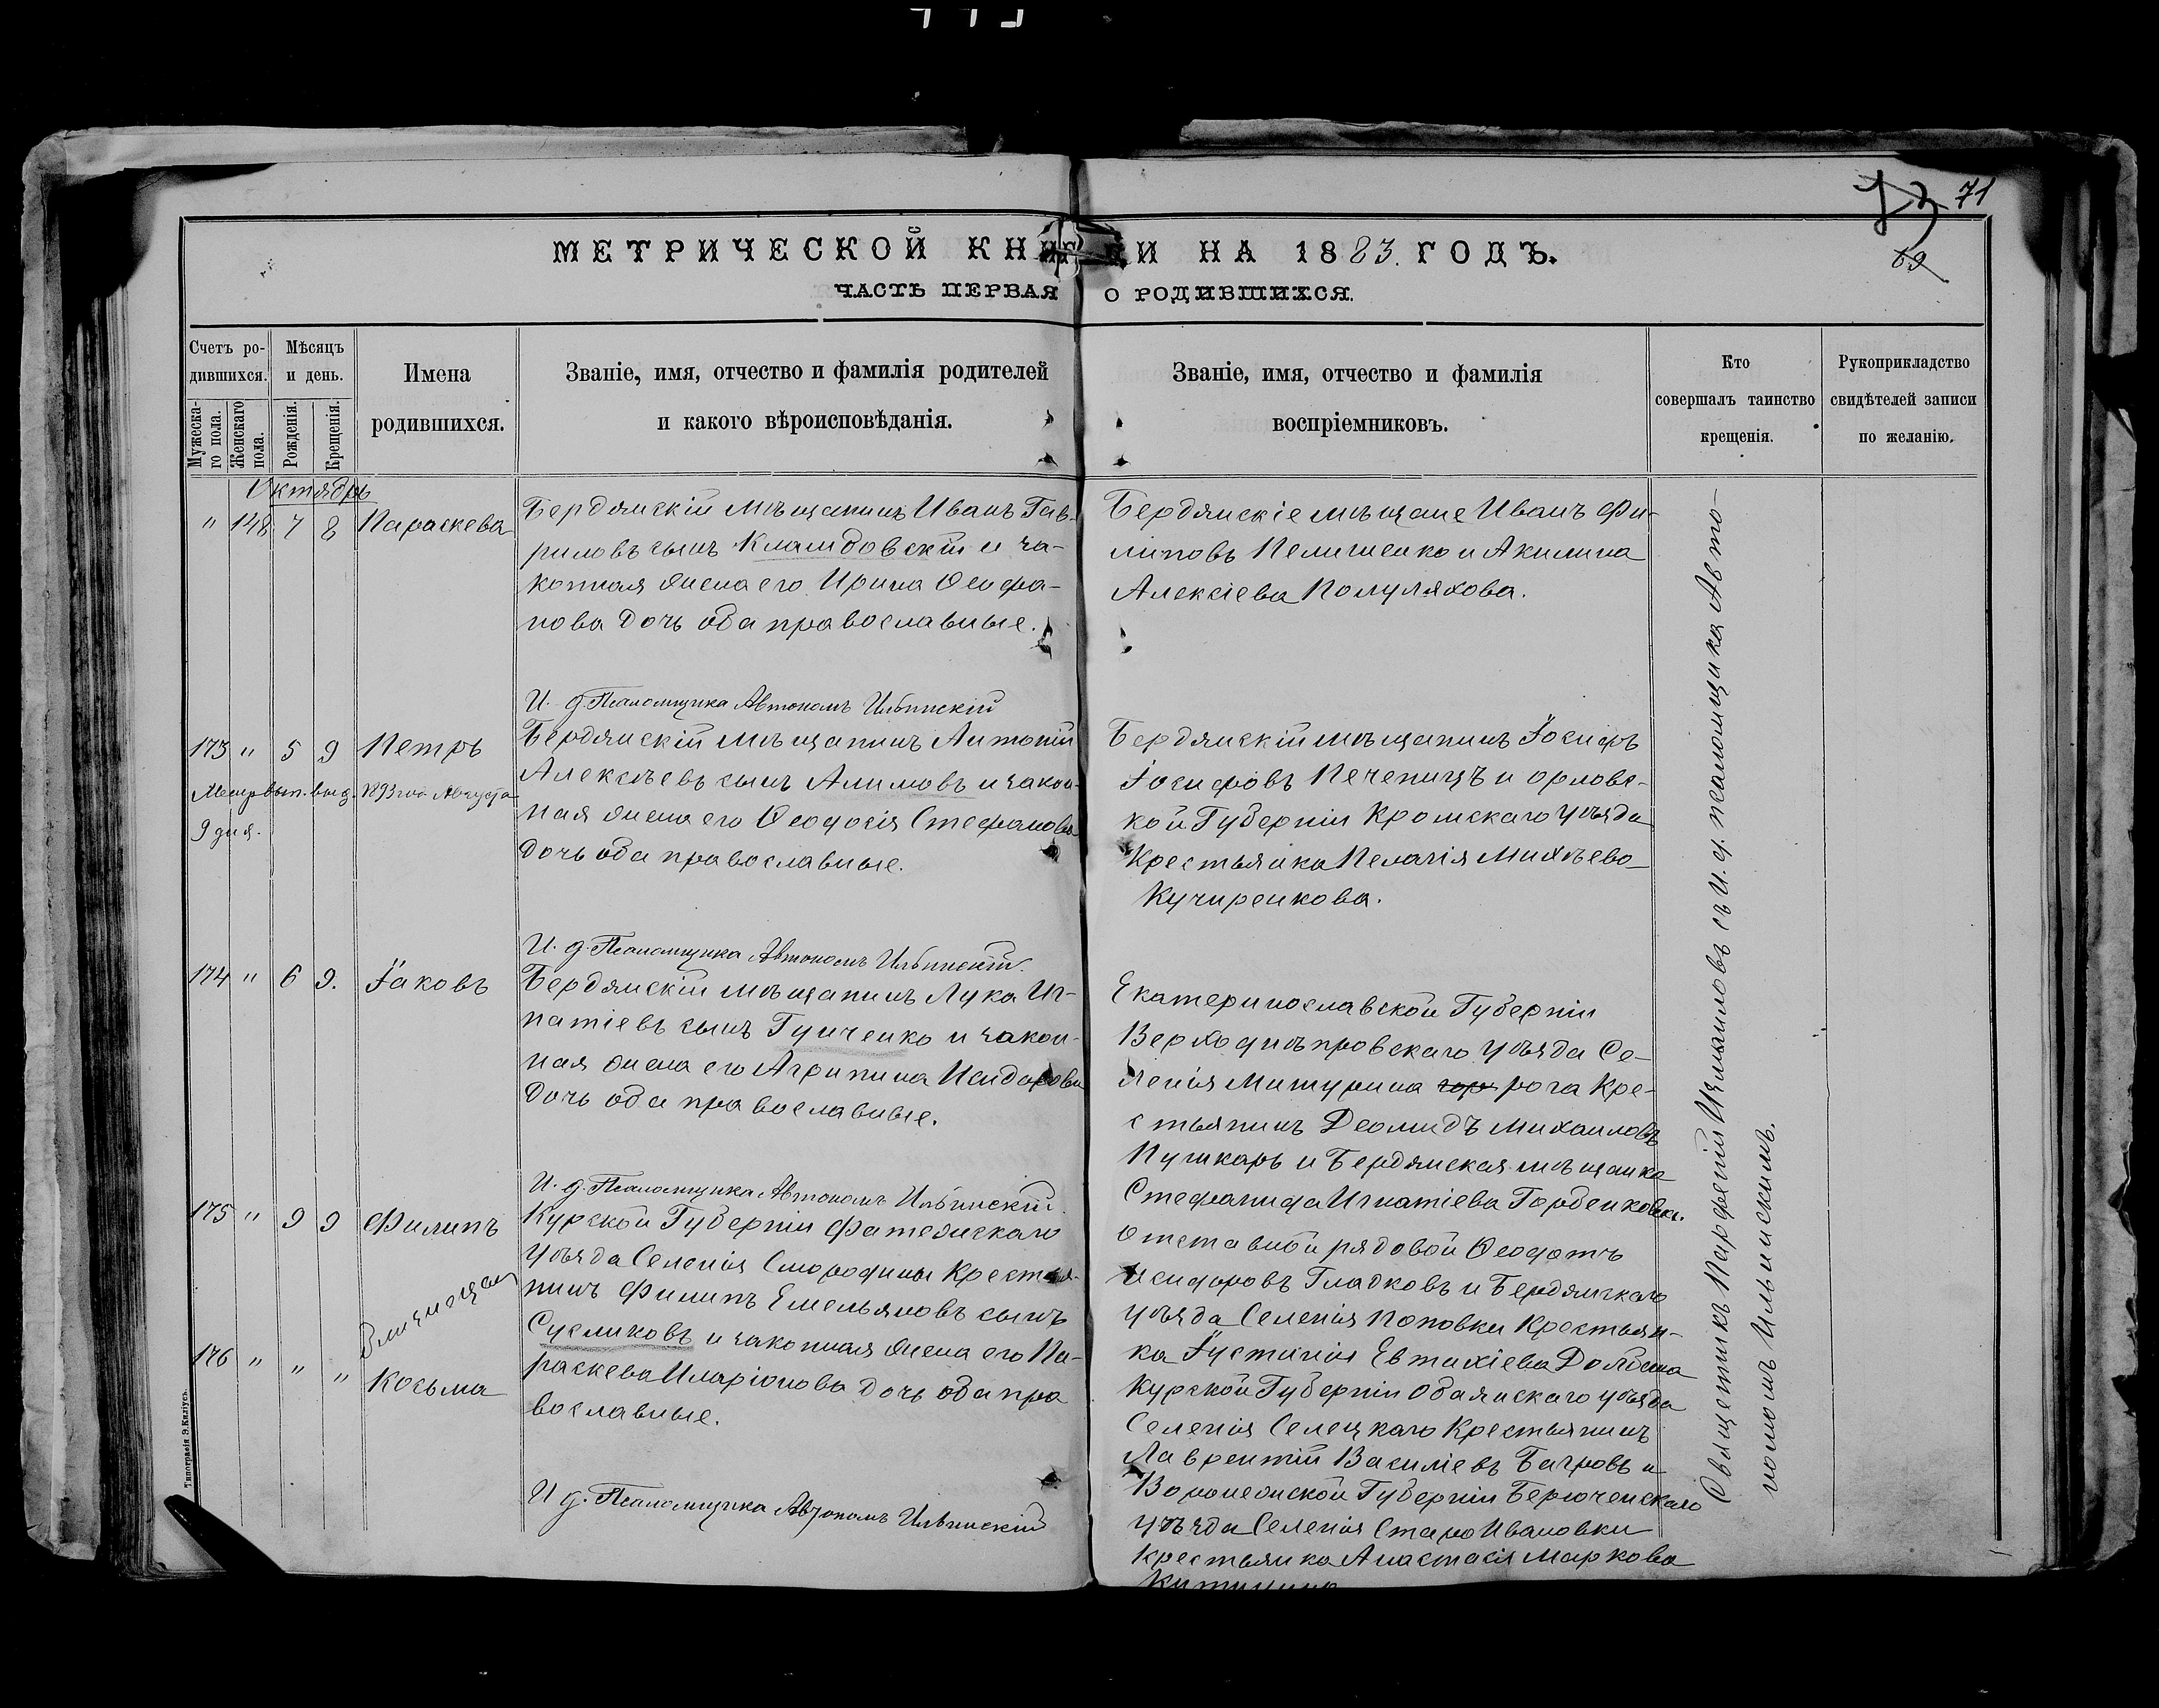 71
69
МЕТРИЧЕСКОЙ КНИГИ НА 1883. ГОДЪ.
ЧАСТЬ ПЕРВАЯ О РОДИВШИХСЯ.
Счетъ ро-
дившихся.
Мужеска-
го пола.
Женскаго
пола.
Мѣсяцъ
и день.
Рожденія.
Крещенія.
Имена
родившихся.
Званіе, имя, отчество и фамилія родителей
и какого вѣроисповѣданія.
Званіе, имя, отчество и фамилія
воспріемниковъ.
Кто
совершалъ таинство
крещенія.
Рукоприкладство
свидѣтелей записи
по желанію.
Октябрь
" 148 7 8 Параскева
Бердянскій мѣщанинъ Иванъ Гав-
риловъ сынъ Кламбовскій и за-
конная жена его Ирина Ѳеофа-
нова дочь оба православные.
Бердянскіе мѣщане Иванъ Фи-
липовъ Пелишенко и Акилина
Алексіева Полуляхова.
И. д. Псаломщика Автономъ Ильинскій
173 " 5 9 Петръ
Метр. вып. выд. 1893 год Августа
9 дня.
Бердянскій мѣщанинъ Антоній
Алексѣевъ сынъ Алимовъ и закон-
ная жена его Ѳеодосія Стефанова
дочь оба православные.
Бердянскій мѣщанинъ Іосифъ
Іосифовъ Печеницъ и орловс-
кой Губерніи Кромскаго уѣзда
Крестьянка Пелагія Михѣева
Кучиренкова.
И. д. Псаломщика Автономъ Ильинскій.
174 " 6 9. Іаковъ
Бердянскій мѣщанинъ Лука Иг-
натіевъ сынъ Гунченко и закон-
ная жена его Агрипина Исидорова
дочь оба православные.
Екатеринославской Губерніи
Верходнѣпровскаго уѣзда Се-
ленія Мишурина рога Кре-
стьянинъ Деомидъ Михаиловъ
Пушкарь и Бердянская мѣщанка
Стефанида Игнатіева Горбенкова.
И. д. Псаломщика Автономъ Ильинскій.
175 " 9 9 Филипъ
Близнецы
176 " " " Козьма
Курской Губерніи Фатежскаго
уѣзда Селенія Смородины Крестья-
нинъ Филипъ Емельяновъ сынъ
Сусликовъ и законная жена его Па-
раскева Иларіонова дочь оба пра
вославные.
Отставной рядовой Ѳеодотъ
Исидоровъ Гладковъ и Бердянскаго
уѣзда Селенія Поповки Крестьян-
ка Іустинія Евтихіева Долбина
Курской Губерніи Обаянскаго уѣзда
Селенія Селецкаго Крестьянинъ
Лаврентій Василіевъ Багровъ и
Воронежской Губерніи Берюченскаго
уѣзда Селенія Старо Ивановки
Крестьянка Анастасія Маркова
И д. Псаломщика Автономъ Ильинскій
Священникъ Парфеній Измаиловъ съ И. д. псаломщика Авто-
номомъ Ильинскимъ.
Типографія Э. Киліусъ.